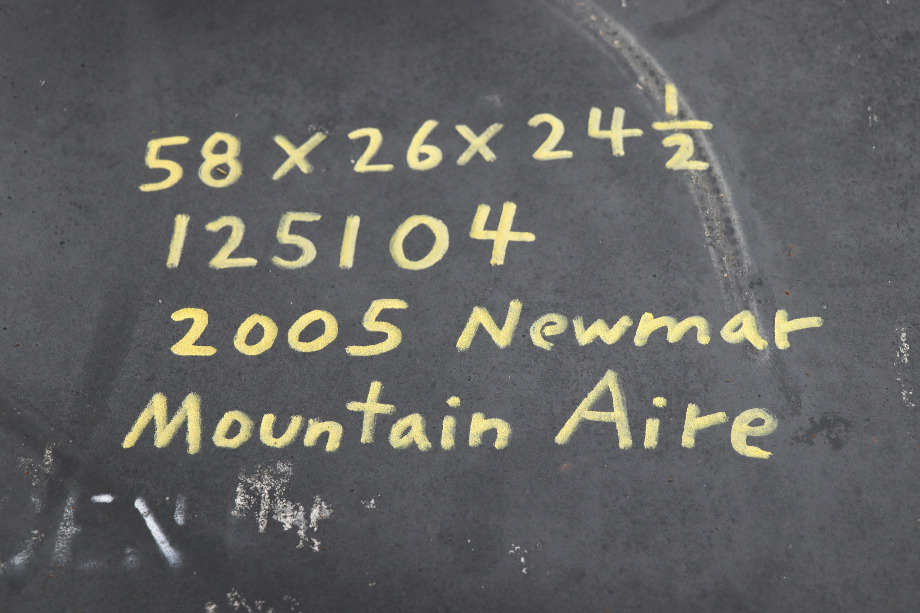 58 x 26 x 24 1/2
125104
2005 Newmar
Mountain Aire